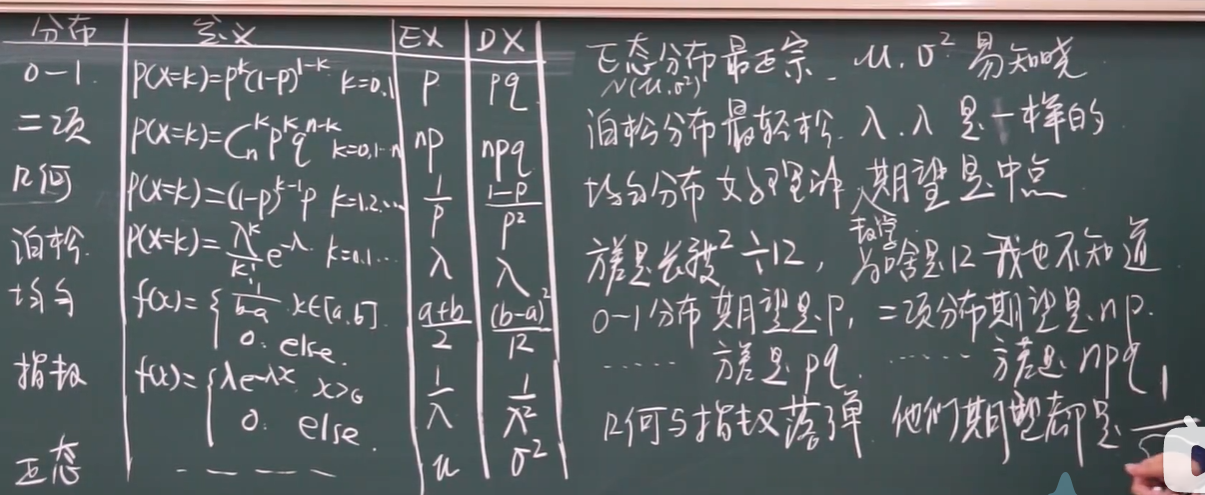 分布 定义 EX DX
0-1 P(X=k)=p^k(1-p)^{1-k} k=0,1 p pq
二项 P(X=k)=C_n^k p^k q^{n-k} k=0,1…n np npq
几何 P(X=k)=(1-p)^{k-1}p k=1,2,… 1/p (1-p)/p²
泊松 P(X=k)=λ^k/k! e^{-λ} k=0,1… λ λ
均匀 f(x)={1/(b-a), x∈[a,b]. (a+b)/2 (b-a)²/12
0. else.
指数 f(x)={λe^{-λx} x>0 1/λ 1/λ²
0. else.
正态 ----- μ σ²
正态分布最正宗. μ.σ² 易知晓
N(μ,σ²)
泊松分布最轻松. λ.λ 是一样的
均匀分布 期望是中点
方差是长度²÷12, 为啥是12 我也不知道
数学
0-1分布期望是p, 二项分布期望是np.
…… 方差是pq. …… 方差是npq
几何与指数 落单 他们期望都是 1